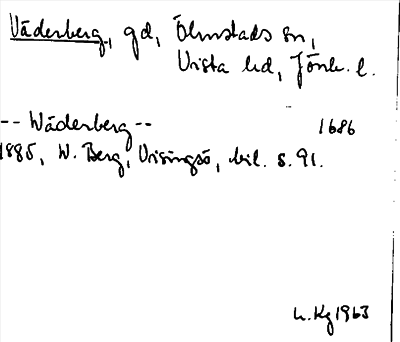 Väderberg, gd, Ölmstads sn,
Vista hd, Jönk. l.
-- Wäderberg -- 1686
1885, W. Berg, Visingsö, bil. s. 91.
L. Kg 1963